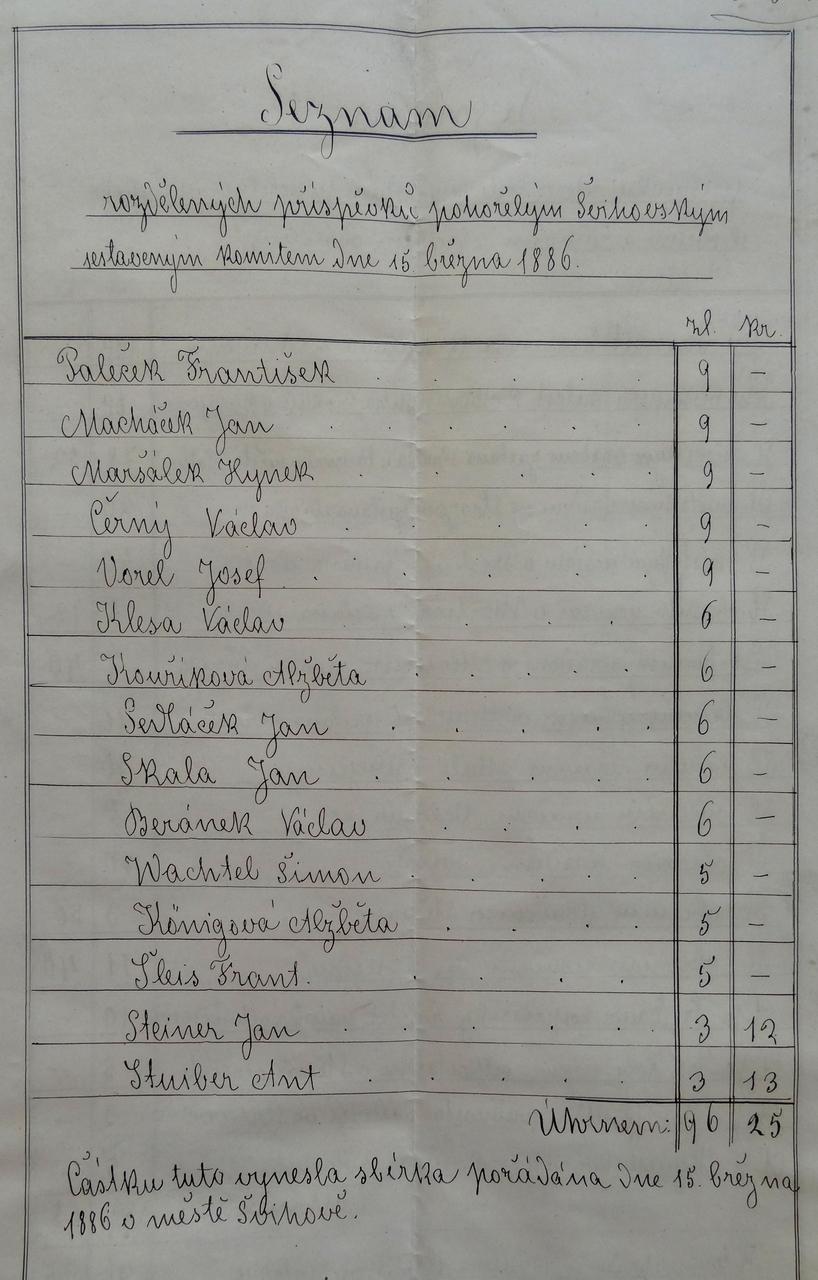 Seznam
rozdělených příspěvků pohořelým Švihovským
sestaveným komitem dne 15 března 1886.
zl. kr.
Paleček František . . . . . 9 –
Macháček Jan . . . . . . 9 –
Maršálek Hynek . . . . . 9 –
Černý Václav . . . . . 9 –
Vorel Josef . . . . . 9 –
Klesa Václav . . . . . 6 –
Kouříková Alžběta . . . . 6 –
Sedláček Jan . . . . . 6 –
Skala Jan . . . . . 6 –
Beránek Václav . . . . 6 –
Wachtel Šimon . . . . . 5 –
Königová Alžběta . . . . 5 –
Šleis Frant. . . . . 5 –
Steiner Jan . . . . . . 3 12
Stuiber Ant . . . . . 3 13
Úhrnem: 96 25
Částku tuto vynesla sbírka pořádána dne 15. března
1886 v městě Švihově.